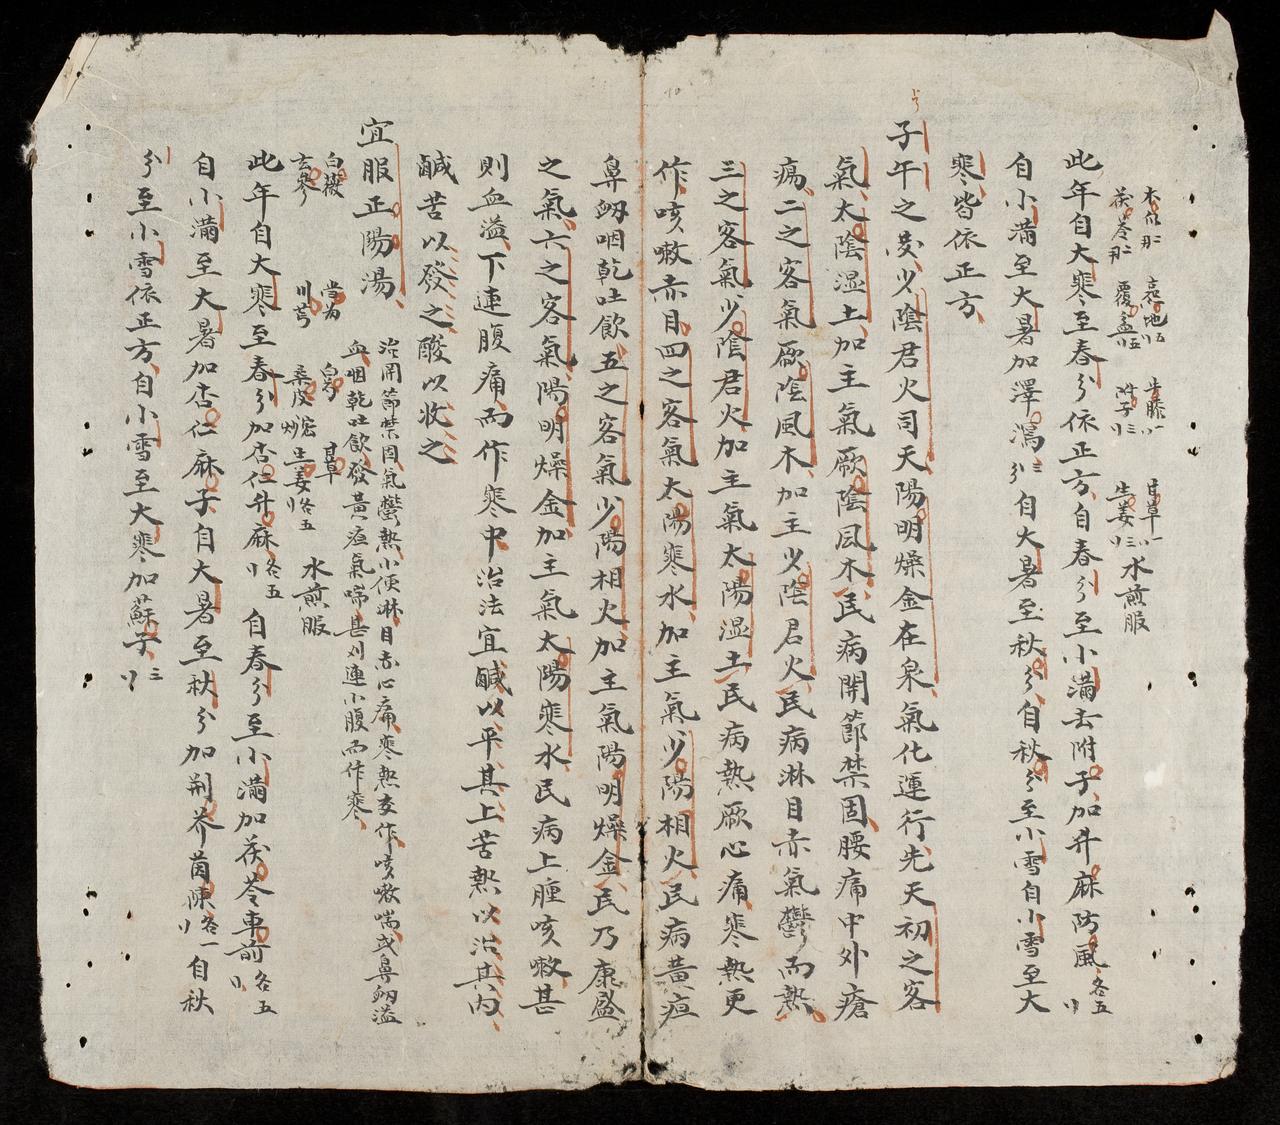 木瓜 熟地五 牛膝一 甘草一
茯苓 覆盆五 附子三 生姜三 水煎服
此年自大寒至春分依正方自春分至小滿去附子加升麻防風各五
自小滿至大暑加澤瀉三自大暑至秋分自秋分至小雪自小雪至大
寒皆依正方
子午之歲少陰君火司天陽明燥金在泉氣化運行先天初之客
氣太陰湿土加主氣厥陰風木民病関節禁固腰痛中外瘡
瘍二之客氣厥陰風木加主少陰君火民病淋目赤氣鬱而熱
三之客氣少陰君火加主氣太陽湿土民病熱厥心痛寒熱更
作咳嗽赤目四之客氣太陽寒水加主氣少陽相火民病黄疸
鼻衂咽乾吐飲五之客氣少陽相火加主氣陽明燥金民乃康盛
之氣六之客氣陽明燥金加主氣太陽寒水民病上腫咳嗽甚
則血溢下連腹痛而作寒中治法宜鹹以平其上苦熱以治其内
鹹苦以發之酸以收之
宜服正陽湯
治関節禁固氣鬱熱小便淋目赤心痛寒熱交作咳嗽喘或鼻衂溢
血咽乾吐飲發黄疸氣喘甚則連小腹而作寒
白薇 當归 白芍 甘草
玄參 川芎 桑皮炒 生姜各五 水煎服
此年自大寒至春分加杏仁升麻各五自春分至小滿加茯苓車前各五
自小滿至大暑加杏仁麻子自大暑至秋分加荆芥茵陳各一自秋
分至小雪依正方自小雪至大寒加蘇子三